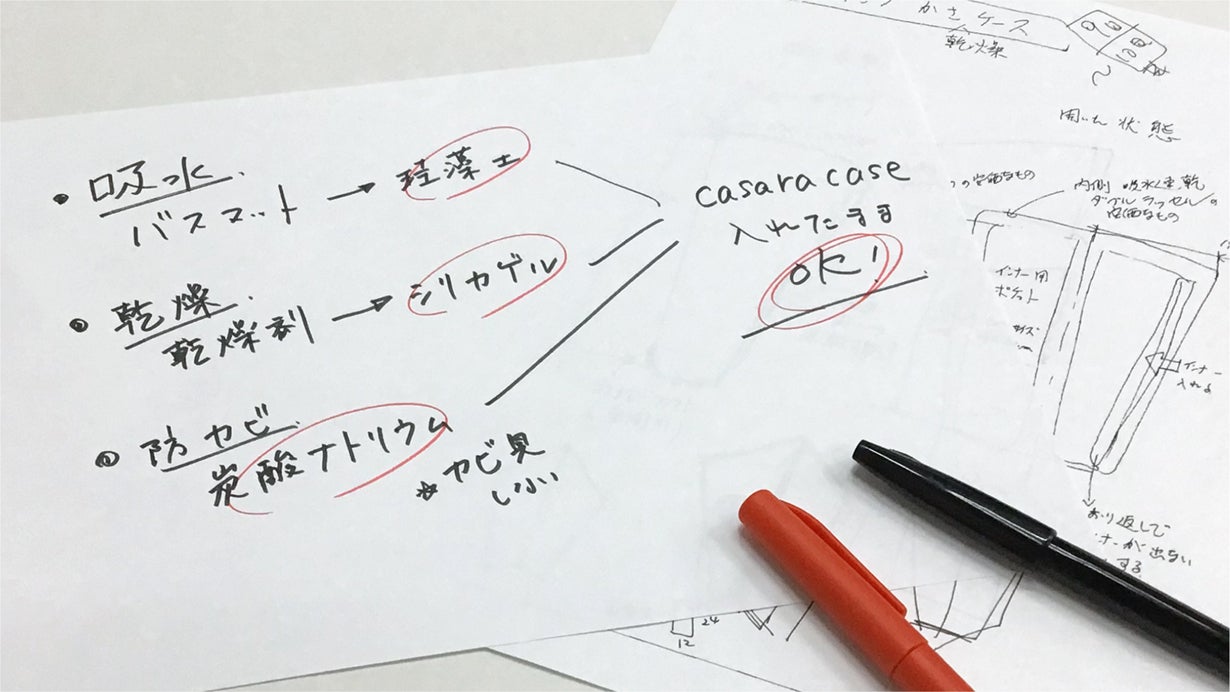 ・吸水
バスマット → 珪藻土
・乾燥
乾燥剤 → シリカゲル
・防カビ
炭酸ナトリウム
＊カビ臭
casara case
入れたまま
OK!
かさケース
乾燥
開いた状態
内側 吸水速乾
ダブルラッセルの
安価なもの
の安価なもの
インナー用
ポケット
サイズ
インナー
入れる
おり返して
ナーが出ない
する
24
12